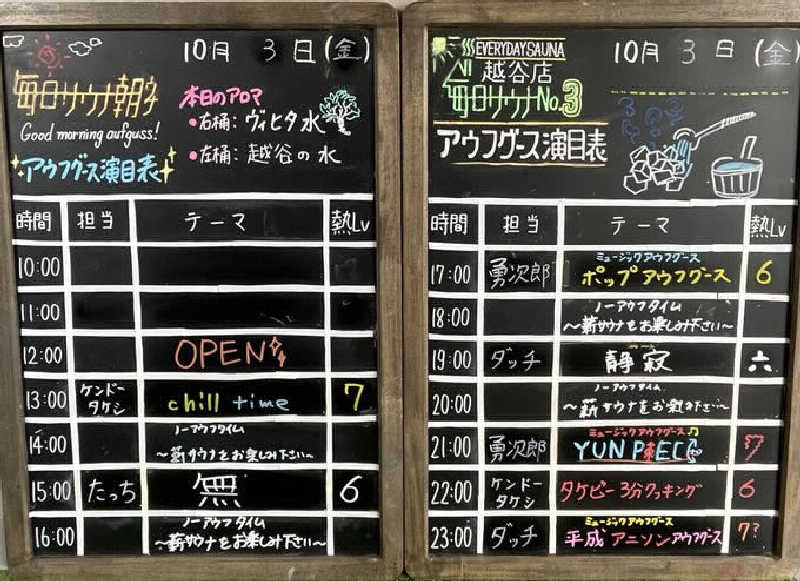 10月 3日(金)
毎日サウナ朝
Good morning aufguss!
アウフグース演目表
本日のアロマ
・右桶: ヴィヒタ水
・左桶: 越谷の水
時間 担当 テーマ 熱Lv
10:00
11:00
12:00 OPEN
13:00 ケンドータケシ chill time 7
14:00 ノーアウフタイム
～薪サウナをお楽しみ下さい～
15:00 たっち 無 6
16:00 ノーアウフタイム
～薪サウナをお楽しみ下さい～
EVERYDAY SAUNA
越谷店
毎日サウナNo.3
アウフグース演目表
10月 3日(金)
時間 担当 テーマ 熱Lv
17:00 勇次郎 ミュージックアウフグース
ポップアウフグース 6
18:00 ノーアウフタイム
～薪サウナをお楽しみ下さい～
19:00 ダッチ 静寂 六
20:00 ノーアウフタイム
～薪サウナをお楽しみ下さい～
21:00 勇次郎 ミュージックアウフグース♫
YUN P東EC 7
22:00 ケンドータケシ タケピー3分クッキング 6
23:00 ダッチ ミュージックアウフグース
平成アニソンアウフグース 7?